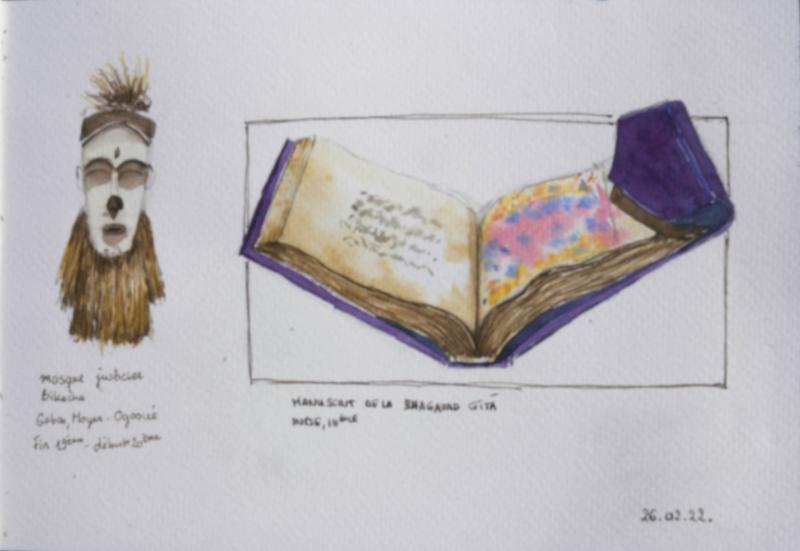 masque justicier
Gabon, Moyen-Ogooué
Fin 19ème - début 20ème
MANUSCRIT DE LA BHAGAVAD GITÀ
INDE, 18ème
26.02.22.